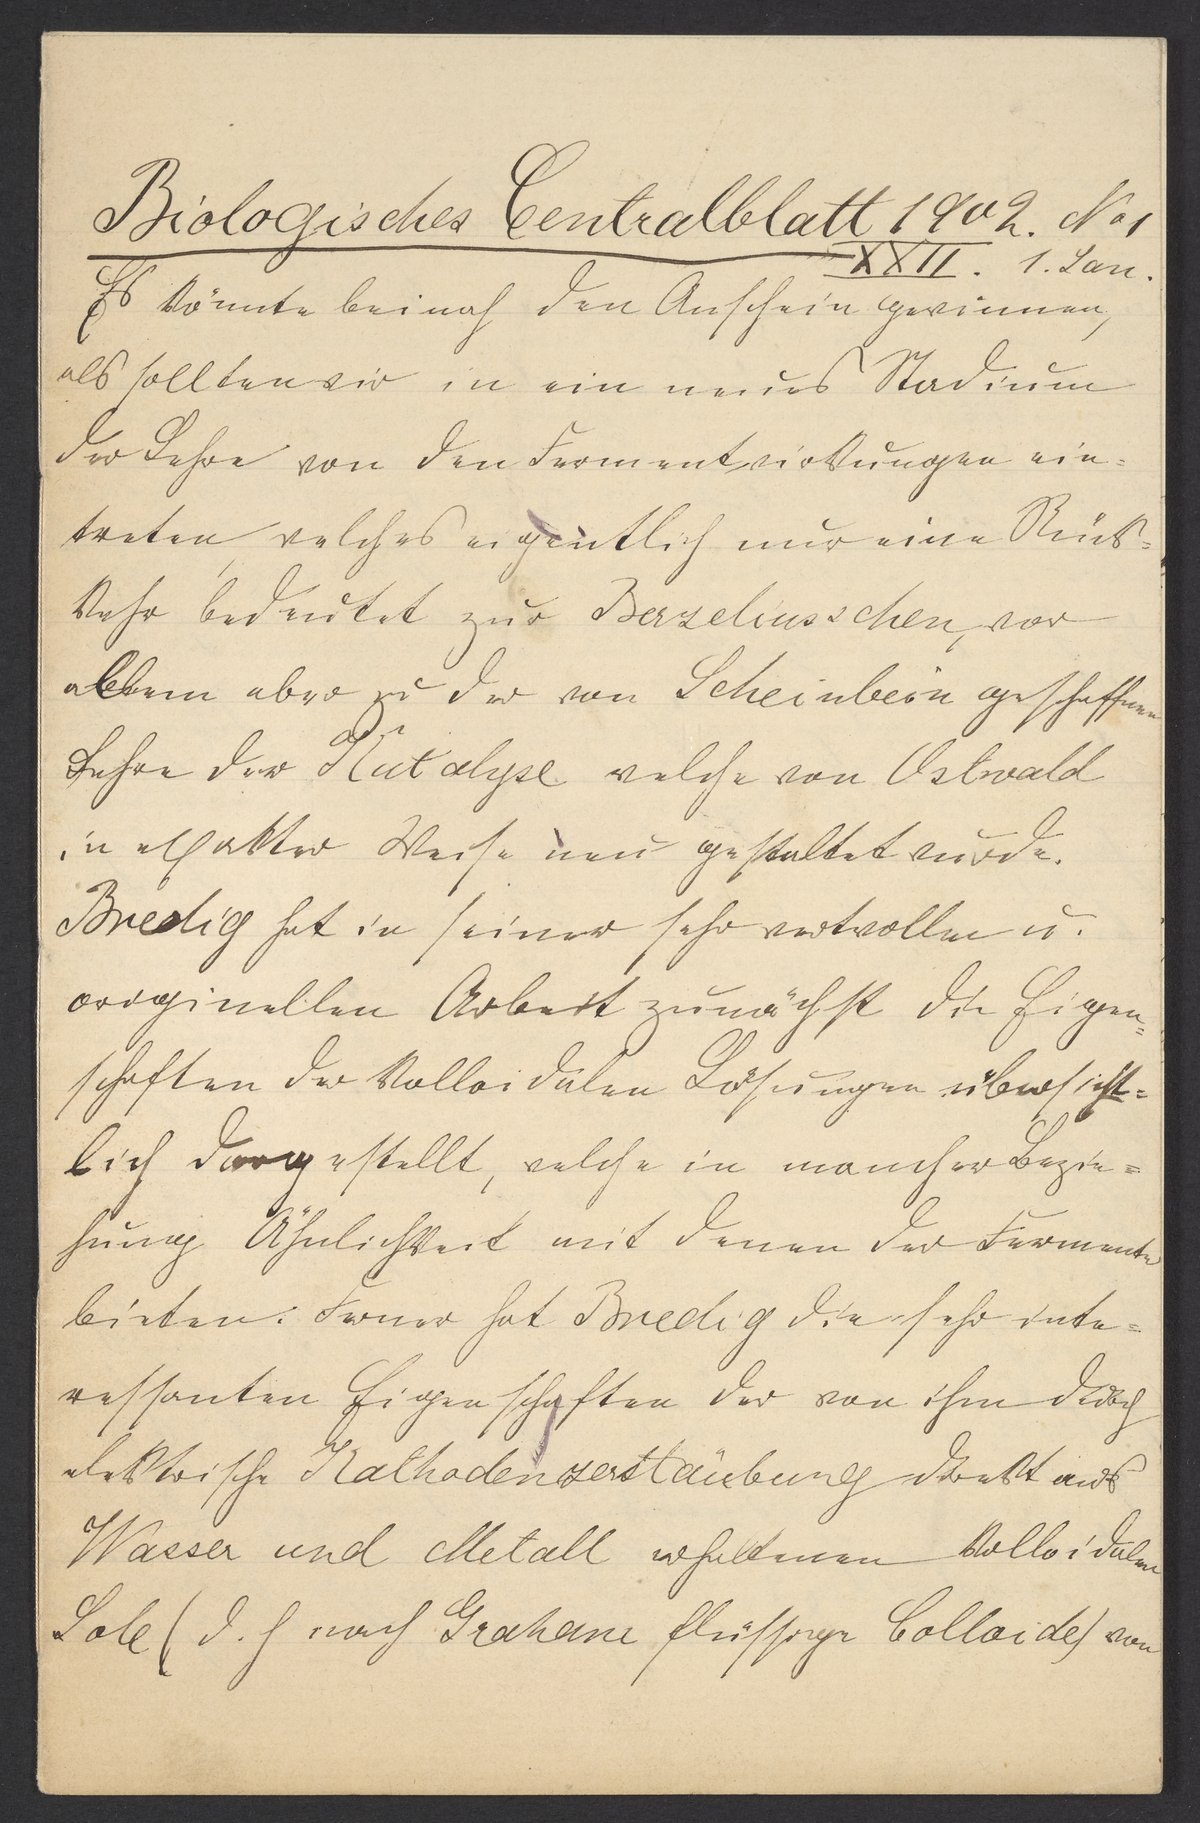 Biologisches Centralblatt 1902. No 1
XXII. 1. Jan.
Es könnte beinah den Anschein gewinnen,
als sollten wir in ein neues Stadium
der Lehre von den Fermentwirkungen ein=
treten, welches eigentlich nur eine Rück=
kehr bedeutet zur Berzeliusschen, vor
allem aber zu der von Scheinbein geschaffnen
Lehre der Katalyse welche von Ostwald
in exakter Weise neu gestaltet wurde.
Bredig hat in seiner sehr wertvollen u.
originellen Arbeit zunächst die Eigen=
schaften der kolloidalen Lösungen übersicht=
lich dargestellt, welche in mancher Bezie=
hung Ähnlichkeit mit denen der Fermente
bieten. Ferner hat Bredig die sehr inte=
ressanten Eigenschaften der von ihm durch
elektrische Kathodenzerstäubung direkt aus
Wasser und Metall erhaltenen kolloidalen
Sole (d. h nach Graham flüssige Colloide) von